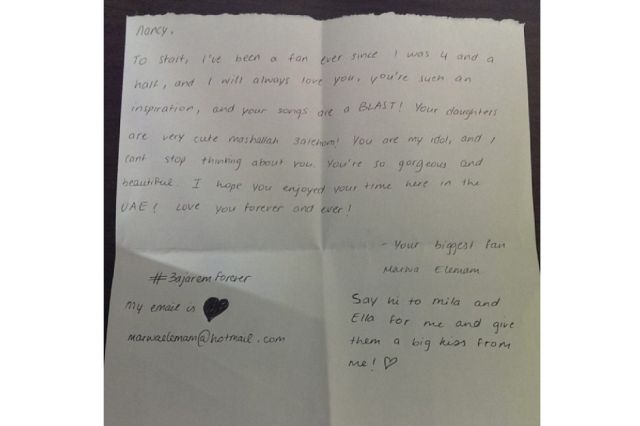 Nancy,
To start, I've been a fan ever since I was 4 and a
half, and I will always love you, you're such an
inspiration, and your songs are a BLAST! Your daughters
are very cute mashallah 3alehom! You are my idol, and I
cant stop thinking about you. You're so gorgeous and
beautiful. I hope you enjoyed your time here in the
UAE! Love you forever and ever!
- Your biggest fan
Marwa Elemam
#3ajaremforever
my email is
marwaelemam@hotmail.com
Say hi to mila and
Ella for me and give
them a big kiss from
me!